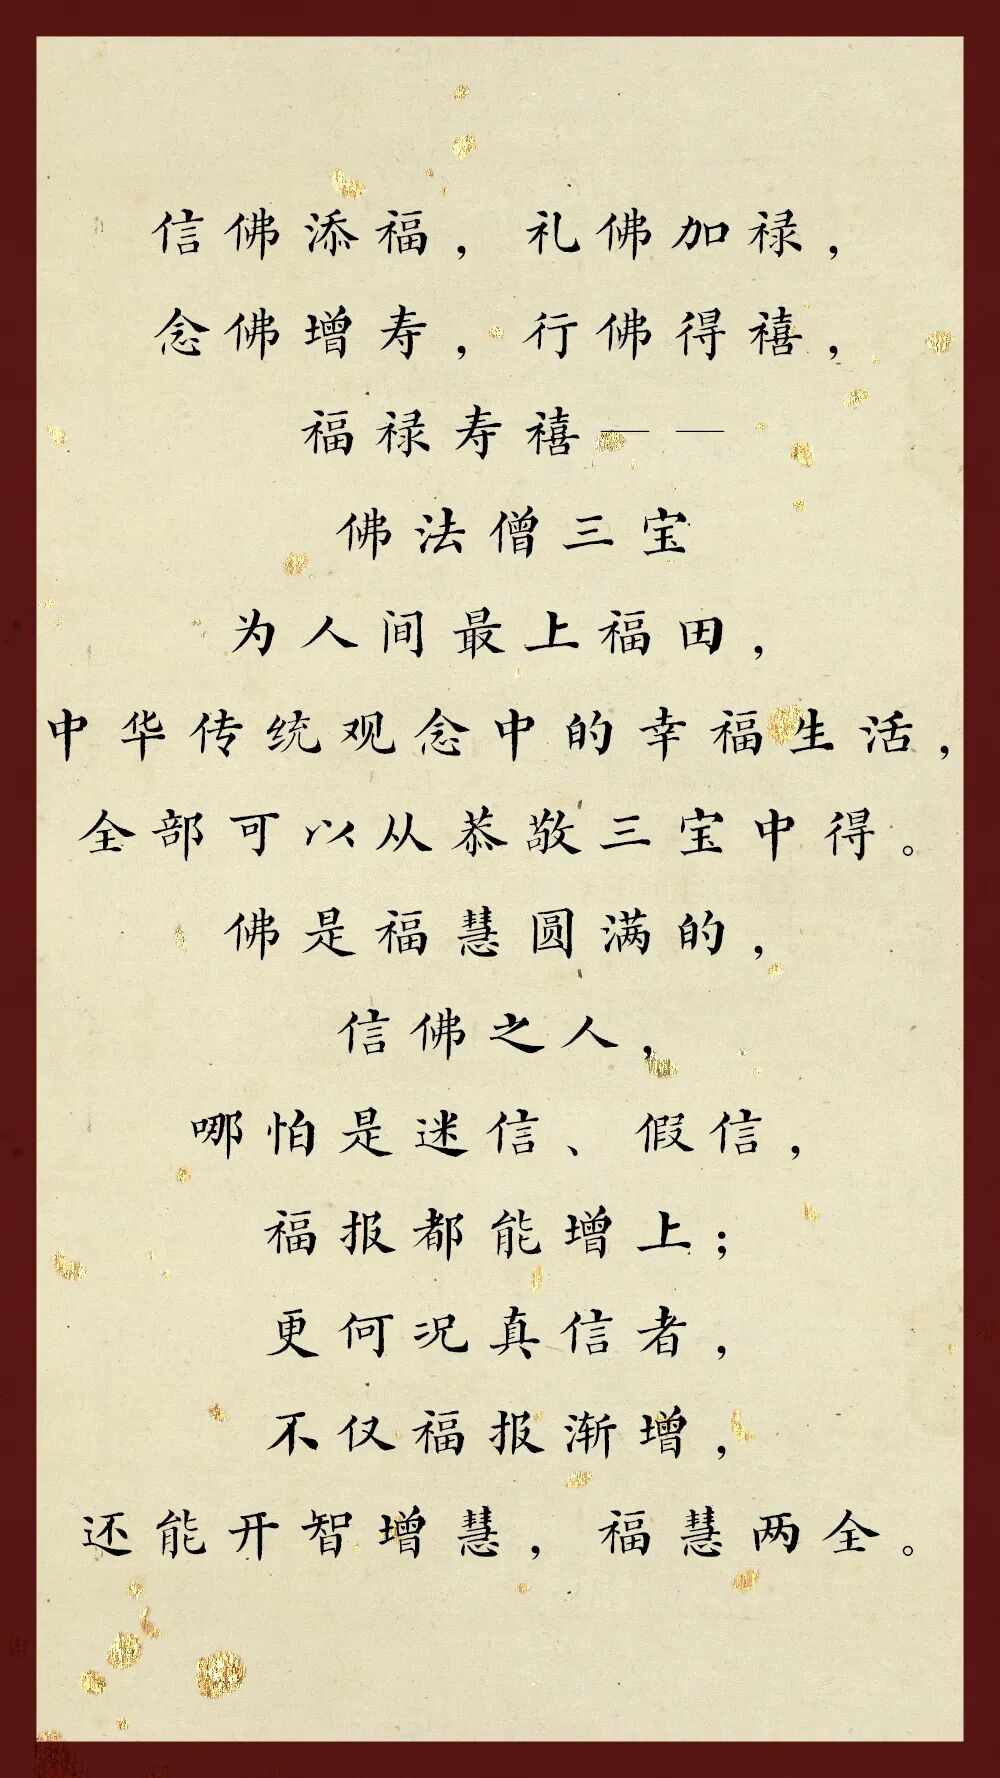 信佛添福，礼佛加禄，
念佛增寿，行佛得禧，
福禄寿禧——
佛法僧三宝
为人间最上福田，
中华传统观念中的幸福生活，
全部可以从恭敬三宝中得。
佛是福慧圆满的，
信佛之人，
哪怕是迷信、假信，
福报都能增上；
更何况真信者，
不仅福报渐增，
还能开智增慧，福慧两全。